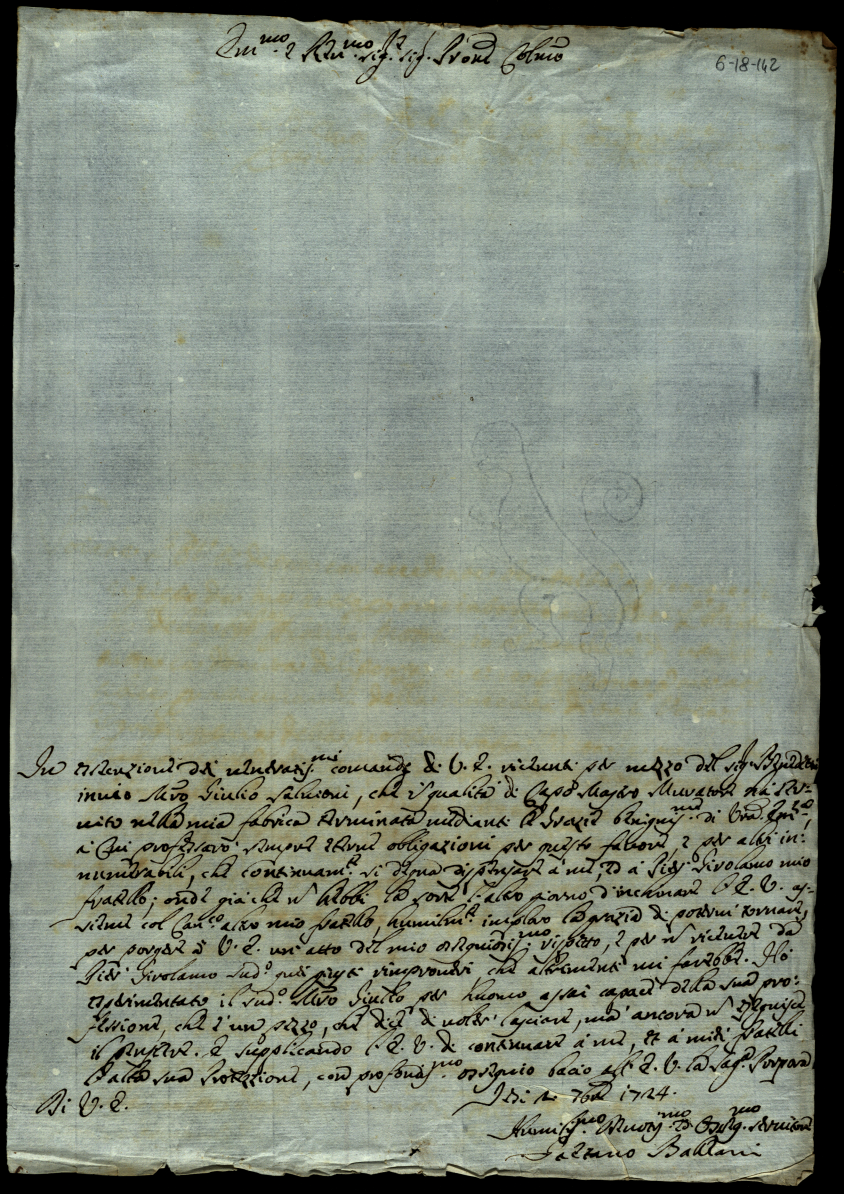 Em.mo e Rev.mo Sig.r Sig. Pron.e Col.mo
6-18-142
In essecuzione dei veneratis.mi comandi di V. E. ricevuti per mezzo del Sig.
invio M.ro Giulio Salvioni, che in qualità di Capo Mastro Muratore ha ser-
vito nella mia fabrica terminata mediante le Grazie benignis.me di
a Cui professarò sempre eterne obligazioni per questo favore, e per altri in:
numerabili, che continuam.te si degna dispensare a me, e a Gio: Girolamo mio
fratello; onde già che non hebbi la sorte l'altro giorno d'inchinare l'E. V. as-
sieme col Can.co altro mio fratello, humilm.te imploro la grazia di potervi tornare,
per porgere à V. E. un'atto del mio ossequiosis.mo rispetto, e per non ricevere da
Gio: Girolamo sud.o quei giusti rimproveri che altrimenti mi farebbe. Hò
esperimentato il sud.o M.ro Giulio per huomo assai capace della sua pro:
fessione, che è un pezzo, che dice di voler lasciare, mà ancora non
il pensiere. E supplicando l'E. V. di continuare à me, et à miei fratelli
l'alta sua Protezzione, con profondis.mo ossequio bacio all'E. V. la Sag.a Porpora
Di V. E.
7bre 1724.
Humilis.mo Devotis.mo et Obblig.mo Servitore
Ballani